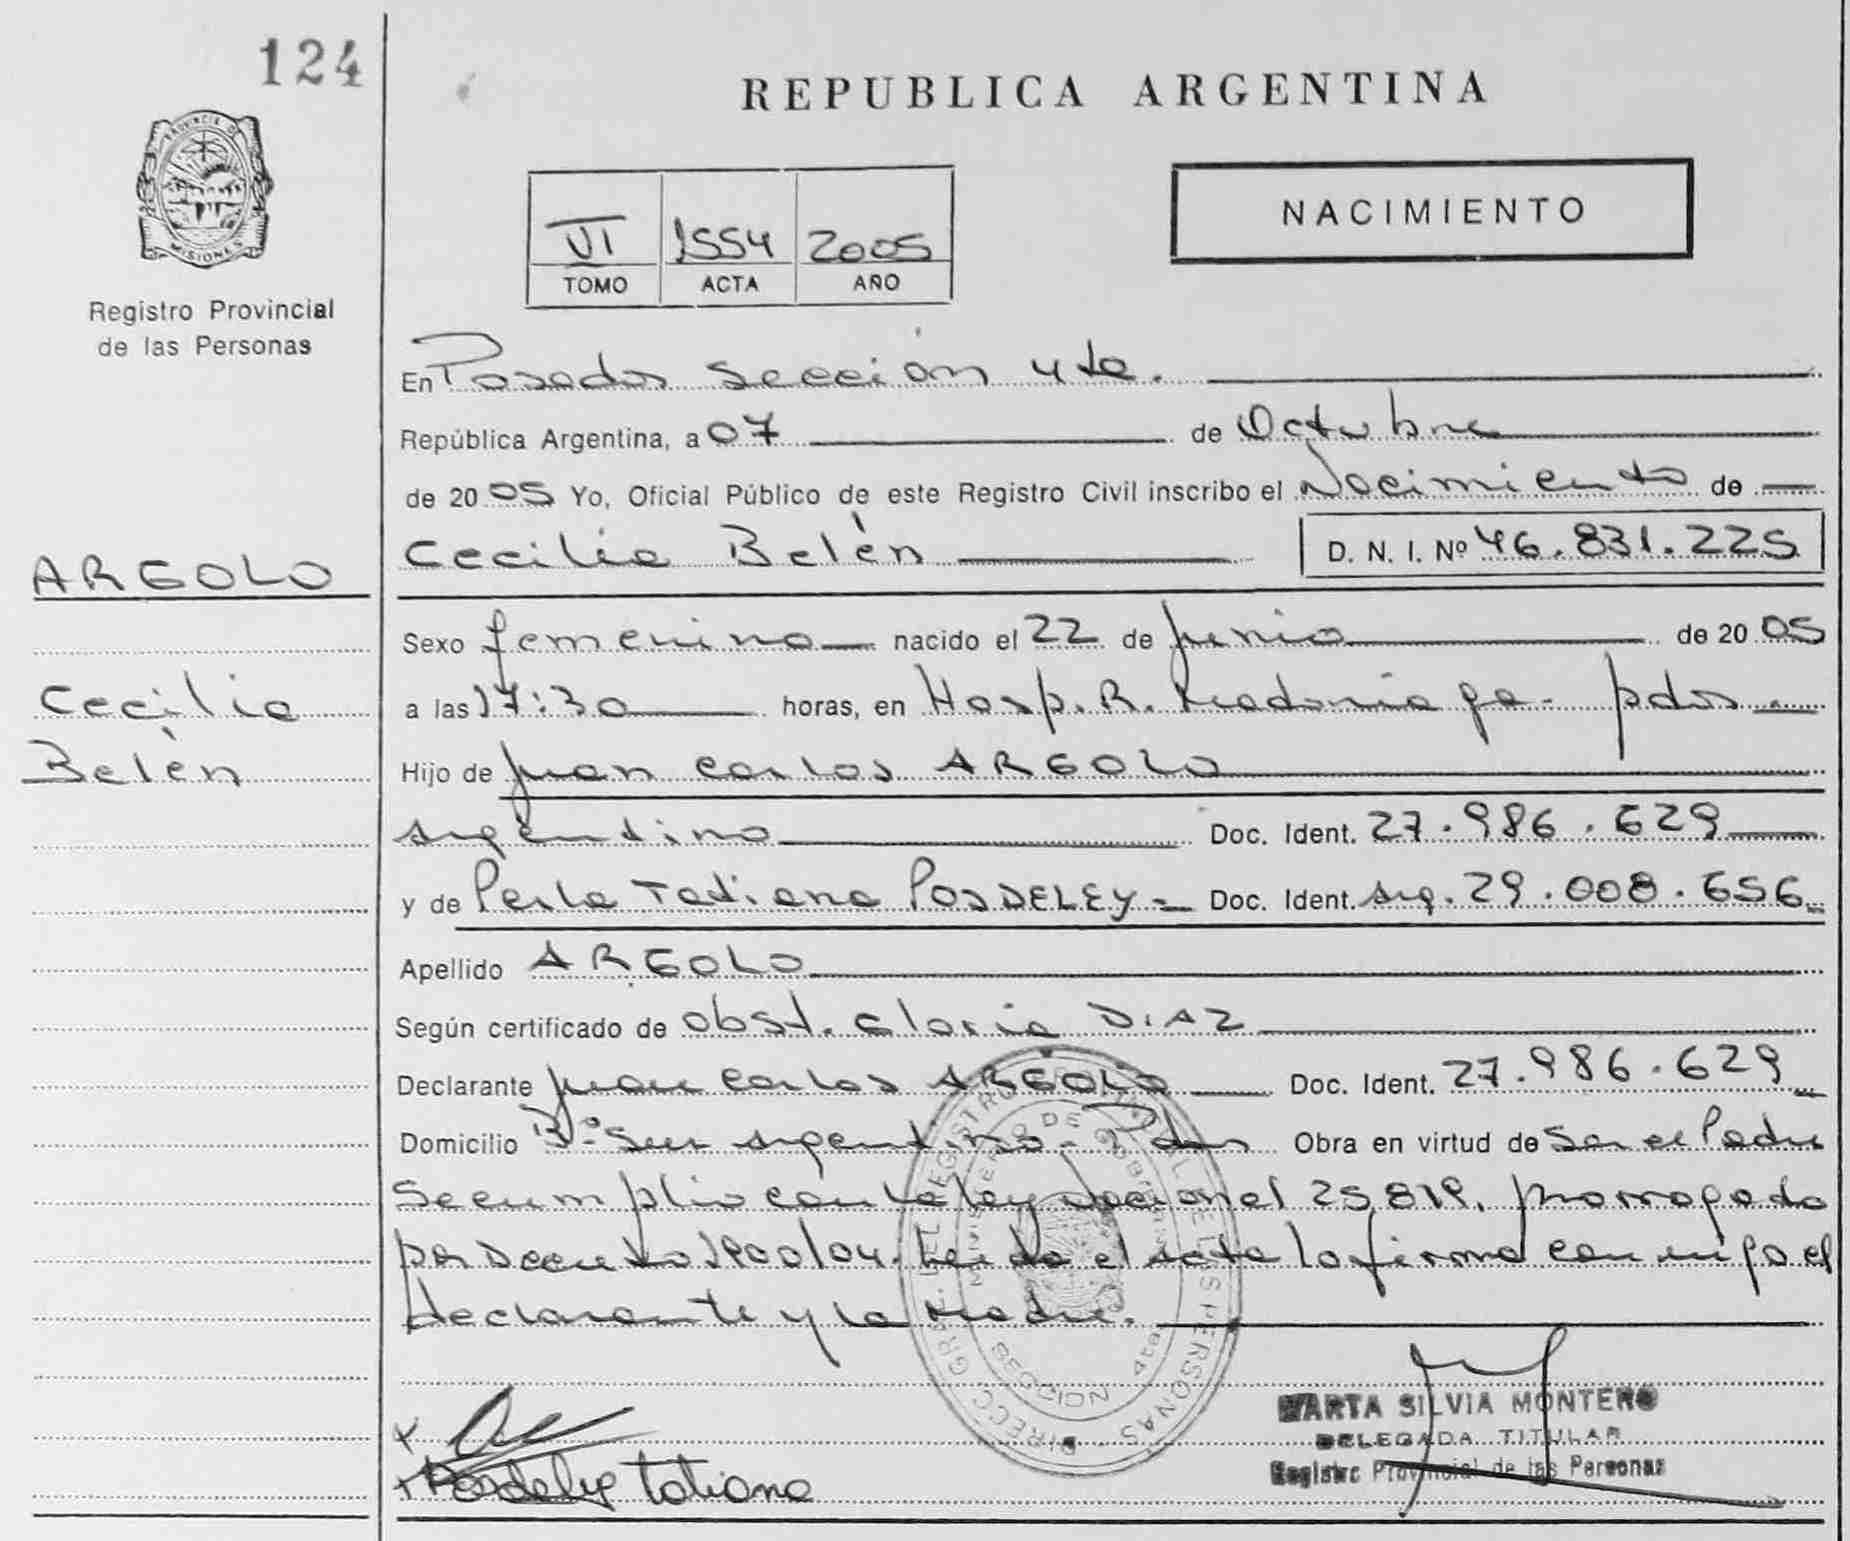 124
REPUBLICA ARGENTINA
PROVINCIA DE
MISIONES
Registro Provincial
de las Personas
NACIMIENTO
VI 1554 2005
TOMO ACTA AÑO
En Posadas sección 4ta.
República Argentina, a 07 de Octubre
de 2005 Yo, Oficial Público de este Registro Civil inscribo el Nacimiento de
Cecilia Belén D. N. I. Nº 46.831.225
ARGOLO
Cecilia
Belén
Sexo femenino nacido el 22 de junio de 2005
a las 17:30 horas, en Hosp. R. Madariaga - pdas
Hijo de Juan Carlos ARGOLO
argentino Doc. Ident. 27.986.629
y de Perla Tatiana POSDELEY - Doc. Ident. arg. 29.008.656
Apellido ARGOLO
Según certificado de obst. Gloria DIAZ
Declarante Juan Carlos ARGOLO Doc. Ident. 27.986.629
Domicilio Bº Sur argentino - Pdas Obra en virtud de Ser el Padre
Se cumplio con la ley Nacional 25.819, prorrogada
por Decreto 1900/04. Leida el acta la firma conmigo el
declarante y la Madre.
MARTA SILVIA MONTERO
DELEGADA TITULAR
Registro Provincial de las Personas
x
x Posdeley Tatiana